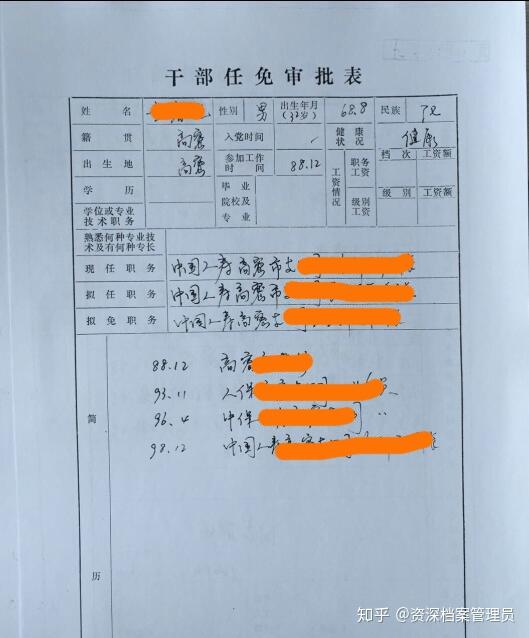 干部任免审批表
姓名 性别 男 出生年月(32岁) 68.8 民族 汉
籍贯 高密 入党时间 健康状况 健康
出生地 高密 参加工作时间 88.12 工资情况 职务工资 档次 工资额
学历 毕业院校及专业 级别工资 级别 工资额
学位或专业技术职务
熟悉何种专业技术及有何种专长
现任职务 中国人寿高密市支
拟任职务 中国人寿高密市支
拟免职务 中国人寿高密支
简历
88.12 高密
93.11 人保
96.4 中保 〃
98.12 中国人寿高密支
知乎 @资深档案管理员